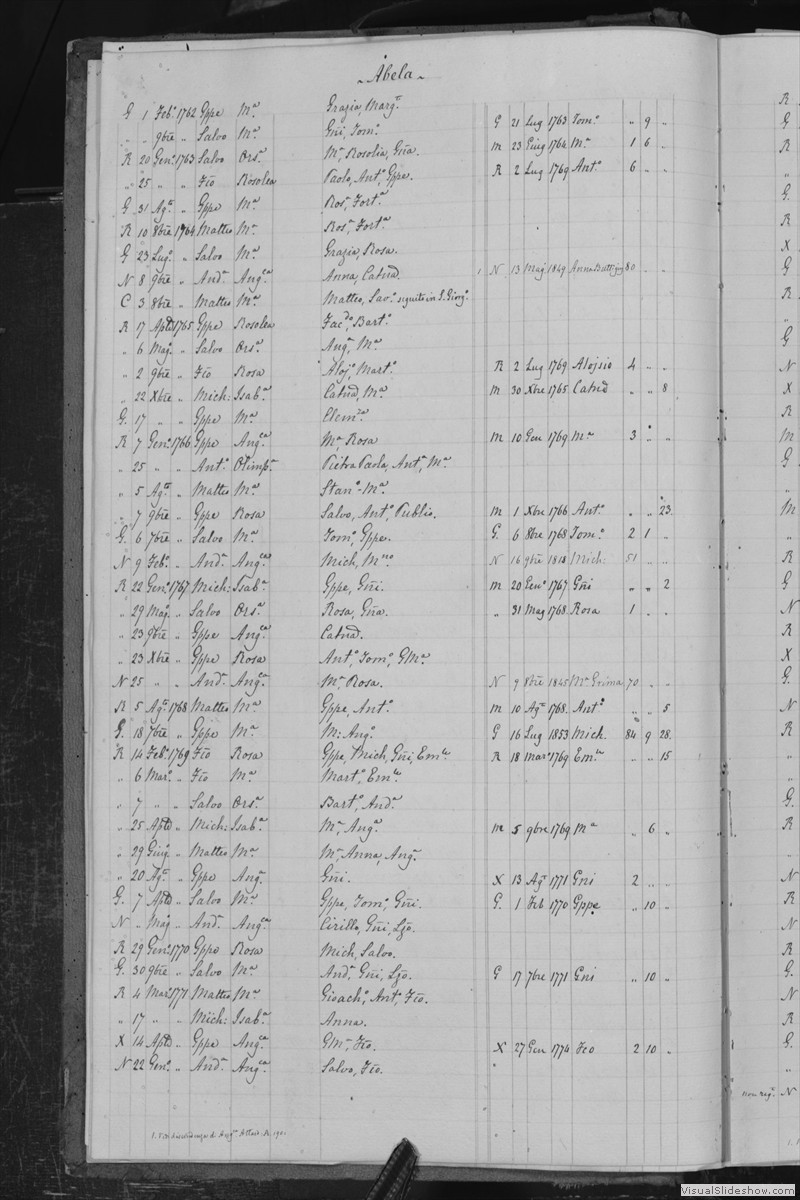 ~ Abela ~
G 1 Feb.º 1762 Gppe Mª Grazia, Margª
„ „ 9bre „ Salvo Mª Gñi, Tomº G 21 Lug 1763 Tomº „ 9 „
R 20 Genº 1763 Salvo Orsª Mª, Rosolia, Gña. M 23 Giug 1764 Mª 1 6 „
„ 25 „ „ Fco Rosolea Paolo, Antº, Gppe. R 2 Lug 1769 Antº 6 „ „
G 31 Agº „ Gppe Mª Rosª, Fortª
R 10 8bre 1764 Matteo Mª Rosª, Fortª
G 23 Lugº „ Salvo Mª Grazia, Rosa.
N 8 9bre „ Andª Angca Anna, Catnª N 13 Mag 1849 Anna Buttigieg 80 „ „
C 3 8bre „ Matteo Mª Matteo, Savº seguite in S. Giorgº
R 17 Aple 1765 Gppe Rosolea Bartº
„ 6 Magº „ Salvo Orsª Angª, Mª
„ 2 9bre „ Fco Rosa Alojº Martº R 2 Lug 1769 Alojsio 4 „ „
„ 22 Xbre „ Mich: Isabª Catnª, Mª M 30 Xbre 1765 Catnª „ „ 8
G. 17 „ „ Gppe Mª Clemza
R 7 Genº 1766 Gppe Angca Mª Rosa M 10 Gen 1769 Mª 3 „ „
„ 25 „ „ Antº Olimpª Pietra Paola, Antª, Mª
„ 5 Agº „ Matteo Mª Stanº-Mª
„ 7 9bre „ Gppe Rosa Salvo, Antº, Publio. M 1 Xbre 1766 Antº „ „ 23.
G. 6 7bre „ Salvo Mª Tomº, Gppe. G. 6 8bre 1768 Tomº 2 1 „
N 9 Febº „ Andª Angca Mich, Mno N 16 9bre 1818 Mich: 51 „ „
R 22 Genº 1767 Mich: Isabª Gppe, Gñi. M 20 Genº 1767 Gñi „ „ 2
„ 29 Magº „ Salvo Orsª Rosa, Gña. „ 31 Mag 1768 Rosa 1 „ „
„ 23 9bre „ Gppe Angca Catnª
„ 23 Xbre „ Gppe Rosa Antº, Tomº, GMª
N 25 „ „ Andª Angca Mª, Rosa. N 9 8bre 1845 Mª Grima 70 „ „
R 5 Agº 1768 Matteo Mª Gppe, Antº M 10 Agº 1768 Antº „ „ 5
G. 18 7bre „ Gppe Mª M: Angº G 16 Lug 1853 Mich. 84 9 28.
R 14 Febº 1769 Fco Rosa Gppe, Mich, Gñi, Emle R 18 Marº 1769 Emle „ „ 15
„ 6 Marº „ Fco Mª Martº, Emle
„ 7 „ „ Salvo Orsª Bartº, Andª
„ 25 Aple „ Mich: Isabª Mª, Angª M 5 9bre 1769 Mª „ 6 „
„ 29 Giugº „ Matteo Mª Mª, Anna, Angª
„ 20 Agº „ Gppe Angª Gñi. X 13 Agº 1771 Gñi 2 „ „
G. 7 Aple „ Salvo Mª Gppe, Tomº, Gñi. G. 1 Feb 1770 Gppe „ 10 „
N „ Magº „ Andª Angca Cirillo, Gñi, Ljo.
R 29 Genº 1770 Gppe Rosa Mich, Salvo.
G. 30 9bre „ Salvo Mª Andª, Gñi, Ljo. G 17 7bre 1771 Gñi „ 10 „
R 4 Marº 1771 Matteo Mª Gioachº, Antº, Fco.
„ 17 „ „ Mich: Isabª Anna.
X 14 Aple „ Gppe Angca GMª, Fco. X 27 Gen 1774 Fco 2 10 „
N 22 Genº „ Andª Angca Salvo, Fco.
non regª N
VisualSlideshow.com